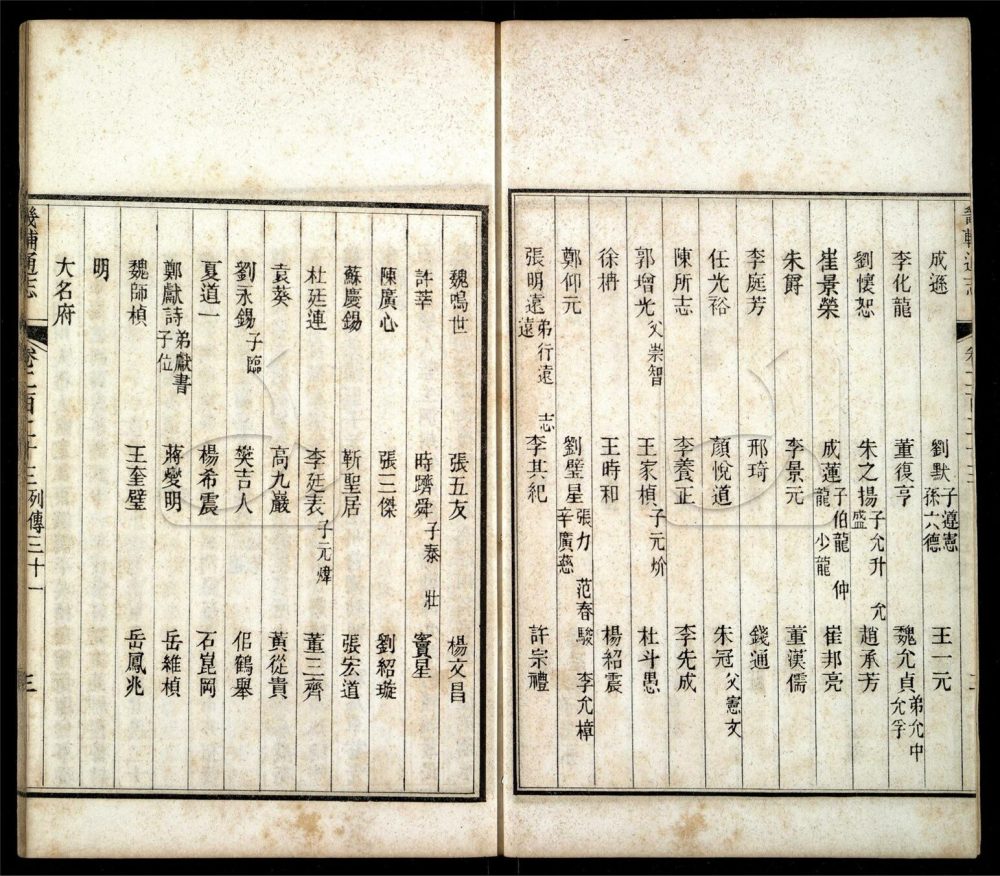 成遜　劉默子遵憲　孫六德　王一元
李化龍　董復亨　魏允貞弟允中　允孚
劉懷恕　朱之揚子允升　允盛　趙承芳
崔景榮　成蓮子伯龍　仲龍　少龍　崔邦亮
朱爵　李景元　董漢儒
李庭芳　邢琦　錢通
任光裕　顏悅道　朱冠父憲文
陳所志　李養正　李先成
郭增光父崇智　王家楨子元炌　杜斗愚
徐　王時和　楊紹震
鄭仰元　劉璧星張力　辛廣慈　范春　駿　李允樟
張明遠弟行遠　志遠　李其紀　許宗禮
魏鳴世　張五友　楊文昌
許莘　時躋舜子泰　壯　竇星
陳廣心　張三傑　劉紹璇
蘇慶錫　靳聖居　張宏道
杜廷連　李廷表子元煒　董三齊
袁葵　高九巖　黃從貴
劉永錫子臨　樊吉人　侶鶴舉
夏道一　楊希震　石崑岡
鄭獻詩弟獻書　子位　蔣變明　岳維楨
魏師楨　王奎璧　岳鳳兆
明
大名府
畿輔通志　卷二百二十三　列傳三十一　三